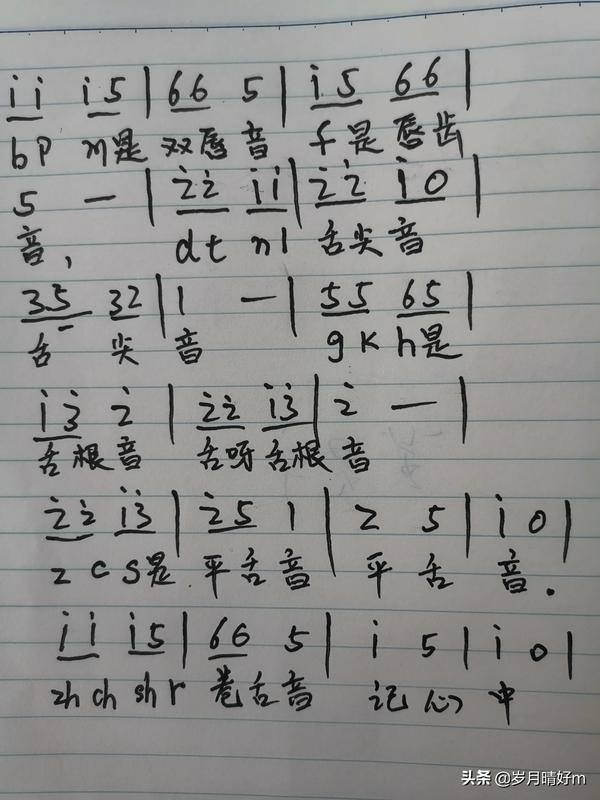 i̇ i̇ i̇ 5 | 6 6 5 | i̇ 5 6 6 |
b p m是 双唇音 f是唇齿
5 — | 2̇ 2̇ i̇ i̇ | 2̇ 2̇ i̇ 0 |
音, d t n l 舌尖音
3 5 3 2 | 1 — | 5 5 6 5 |
舌 尖 音 g k h是
i̇ 3̇ 2̇ | 2̇ 2̇ i̇ 3̇ | 2̇ — |
舌根音 舌呀舌根 音
2̇ 2̇ i̇ 3̇ | 2̇ 5 1 | 2 5 | i̇ 0 |
z c s是 平舌音 平 舌 音.
i̇ i̇ i̇ 5 | 6 6 5 | i̇ 5 | i̇ 0 |
zh ch sh r 卷舌音 记 心 中
头条 @岁月晴好m